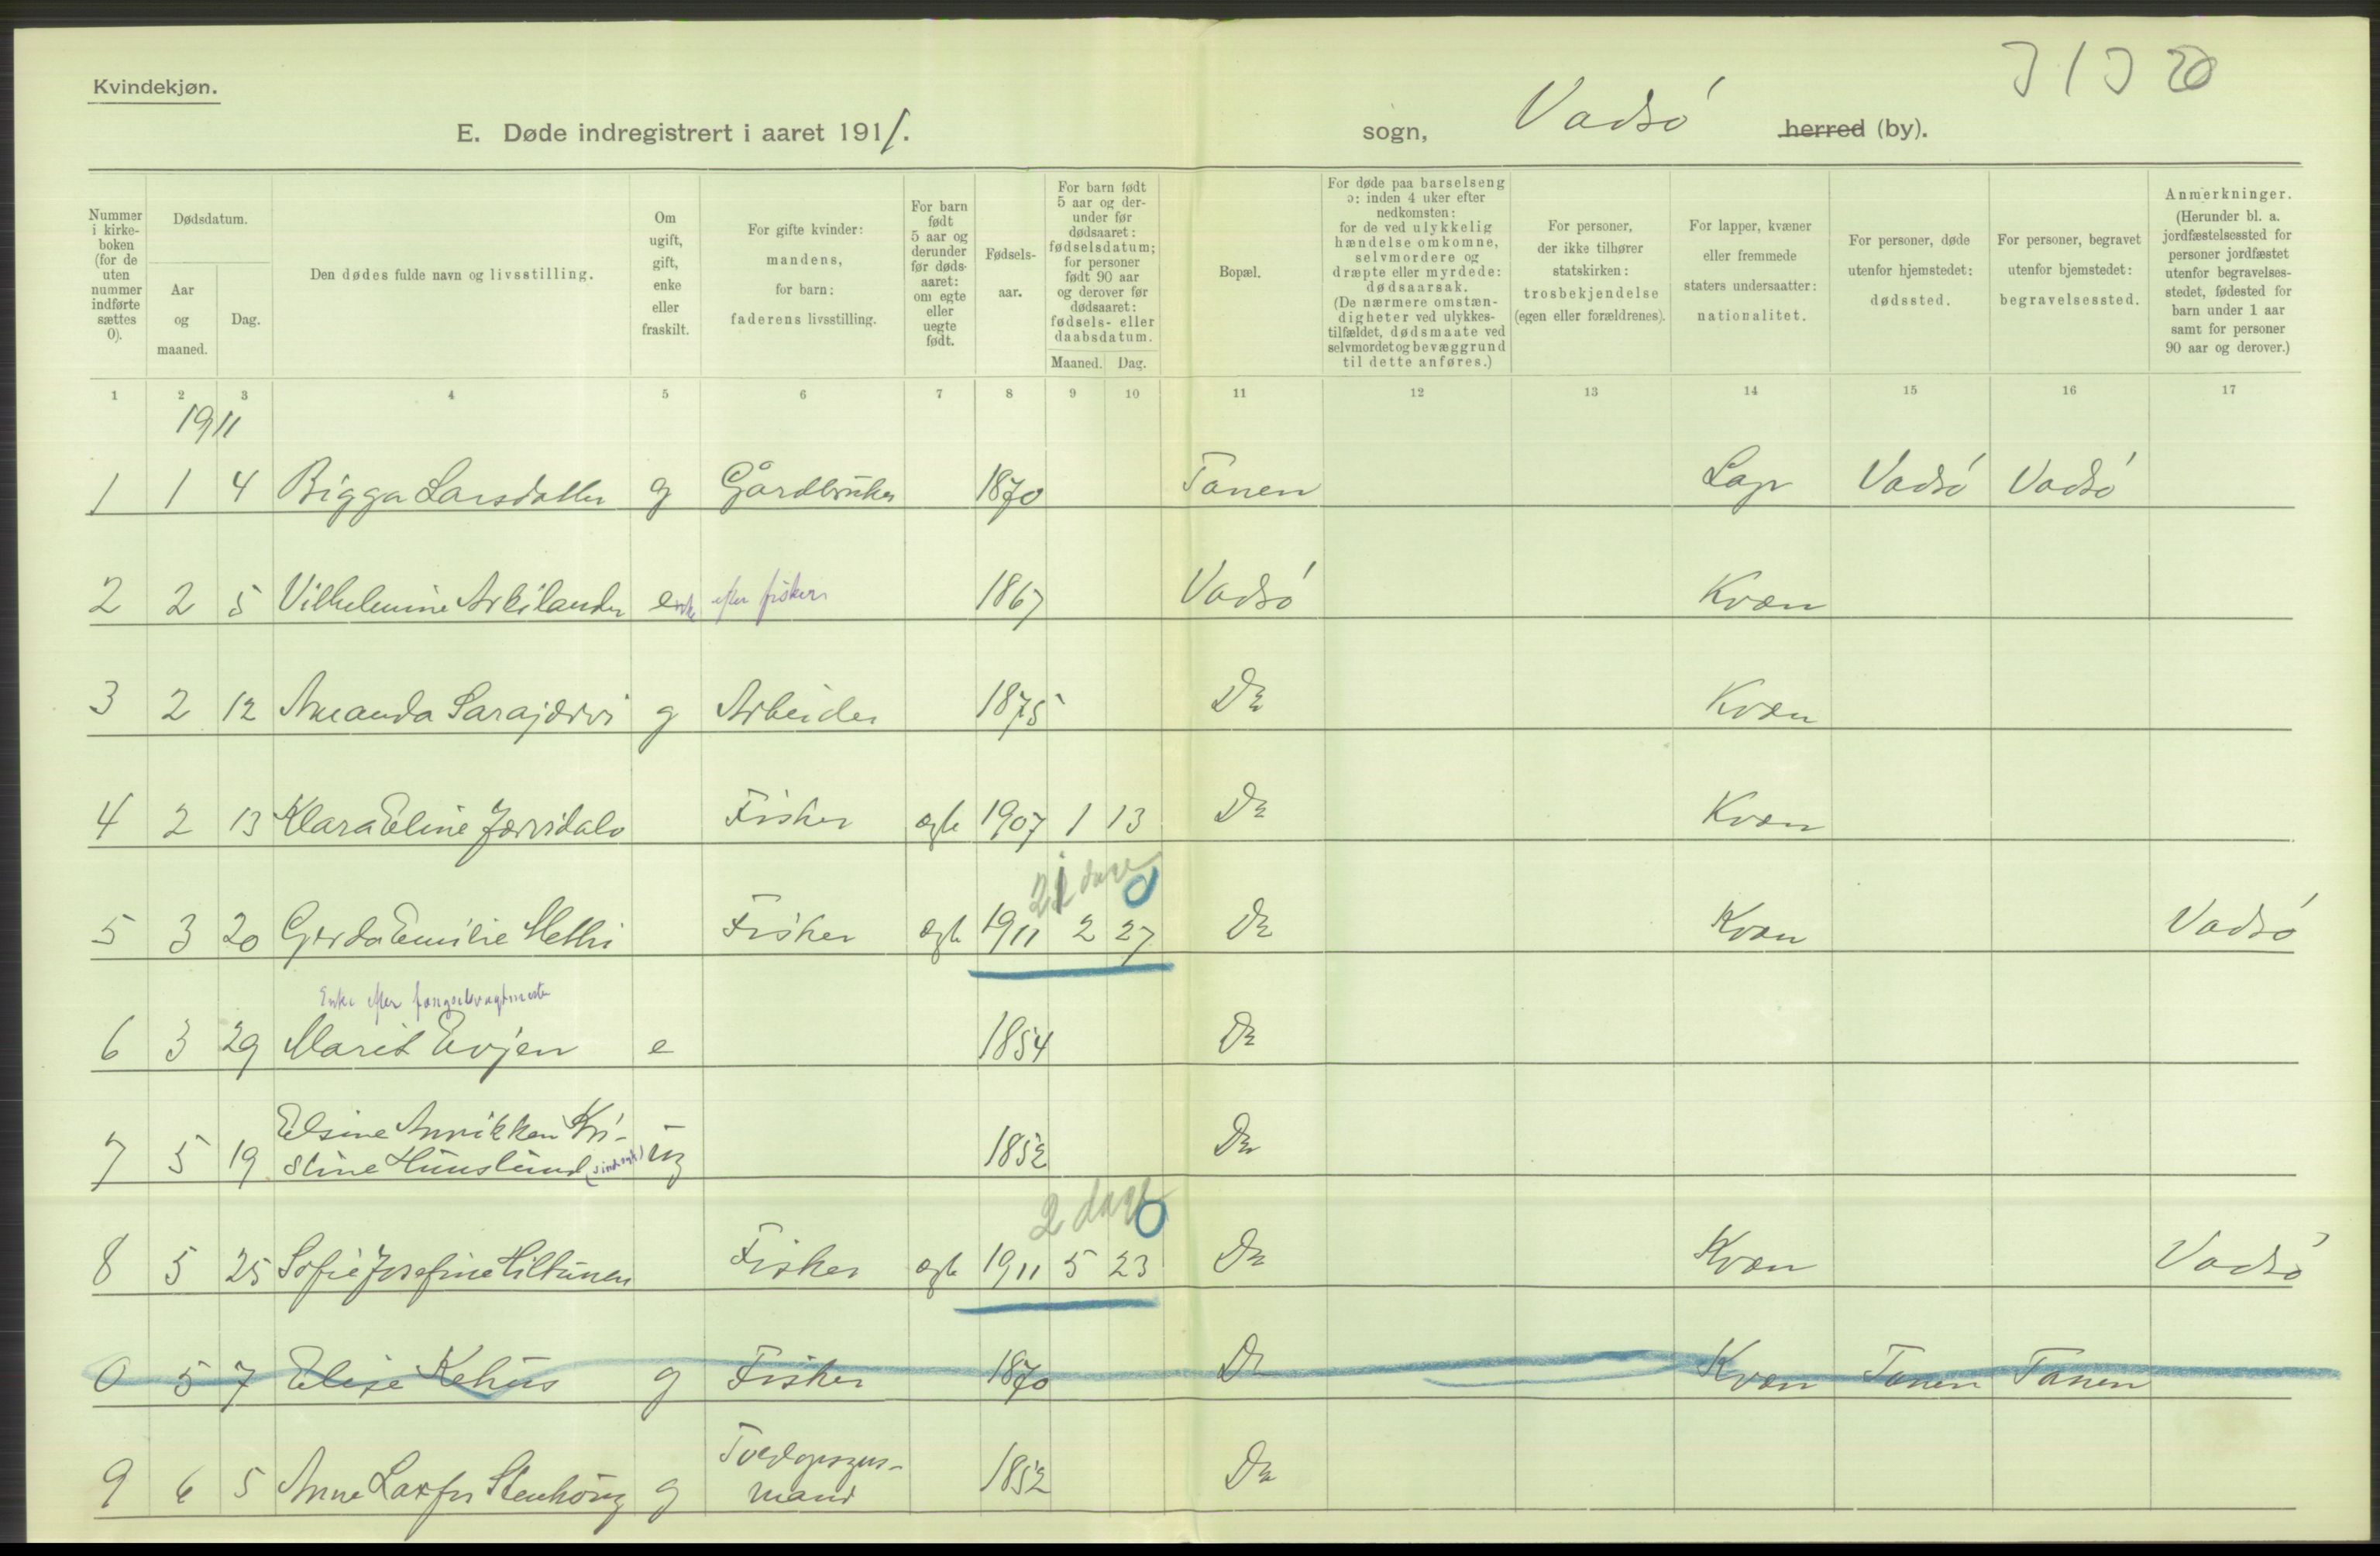 Kvindekjøn.
E. Døde indregistrert i aaret 1911.
sogn, Vadsø herred (by).
Nummer i kirke-boken (for de uten nummer indførte sættes 0).
Dødsdatum.
Aar og maaned.
Dag.
Den dødes fulde navn og livsstilling.
Om ugift, gift, enke eller fraskilt.
For gifte kvinder: mandens, for barn: faderens livsstilling.
For barn født 5 aar og derunder før døds-aaret: om egte eller uegte født.
Fødsels-aar.
For barn født 5 aar og der-under før dødsaaret: fødselsdatum; for personer født 90 aar og derover før dødsaaret: fødsels- eller daabsdatum.
Maaned. Dag.
Bopæl.
For døde paa barselseng ɔ: inden 4 uker efter nedkomsten: for de ved ulykkelig hændelse omkomne, selvmordere og dræpte eller myrdede: dødsaarsak. (De nærmere omstæn-digheter ved ulykkes-tilfældet, dødsmaate ved selvmordet og bevæggrund til dette anføres.)
For personer, der ikke tilhører statskirken: trosbekjendelse (egen eller forældrenes).
For lapper, kvæner eller fremmede staters undersaatter: nationalitet.
For personer, døde utenfor hjemstedet: dødssted.
For personer, begravet utenfor hjemstedet: begravelsessted.
Anmerkninger. (Herunder bl. a. jordfæstelsessted for personer jordfæstet utenfor begravelses-stedet, fødested for barn under 1 aar samt for personer 90 aar og derover.)
1 2 3 4 5 6 7 8 9 10 11 12 13 14 15 16 17
1911
1 1 4 Bigga Larsdatter g Gårdbruker 1870 Tanen Lap Vadsø Vadsø
2 2 5 Vilhelmine Arkilander enke efter fisker 1867 Vadsø Kvæn
3 2 12 Amanda Sarajærvi g Arbeider 1875 Do Kvæn
4 2 13 Klara Eline Jærvidalo Fisker ægte 1907 1 13 Do Kvæn
21 dage
5 3 20 Gerda Emilie Methi Fisker ægte 1911 2 27 Do Kvæn Vadsø
Enke efter fængselsvagtmester
6 3 29 Marit Evjen e 1854 Do
Elsine Annikken Kri-
7 5 19 stine Hunslund ug 1852 Do
2 dage
8 5 25 Sofie Josefine Hiltunen Fisker ægte 1911 5 23 Do Kvæn Vadsø
0 5 7 Elise Kehus g Fisker 1870 Do Kvæn Tanen Tanen
Toldopsyns-
9 6 5 Anne Laxfor Stenhøug g mand 1852 Do